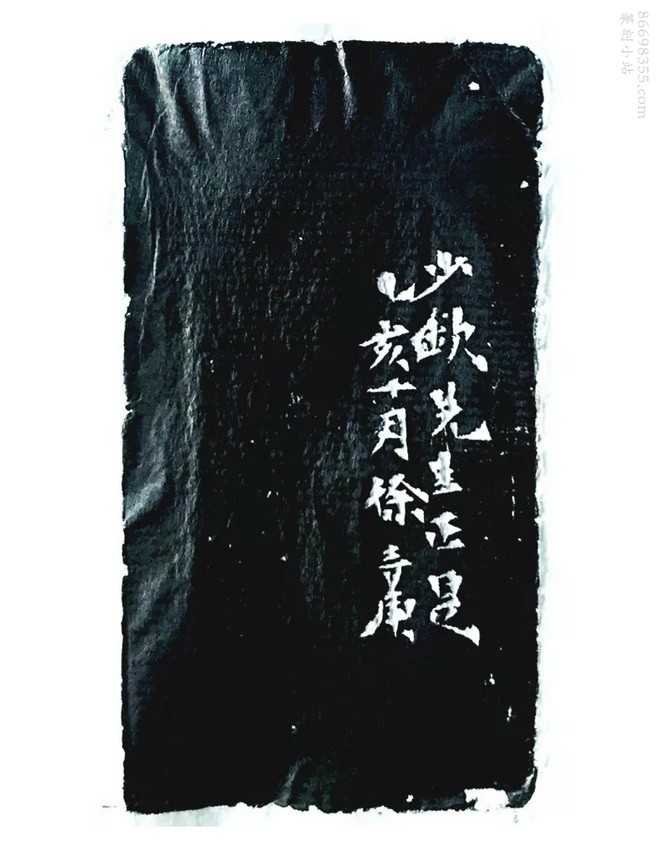 少欽先生正是
乙亥十月徐三庚
86698355.com
篆刻小站